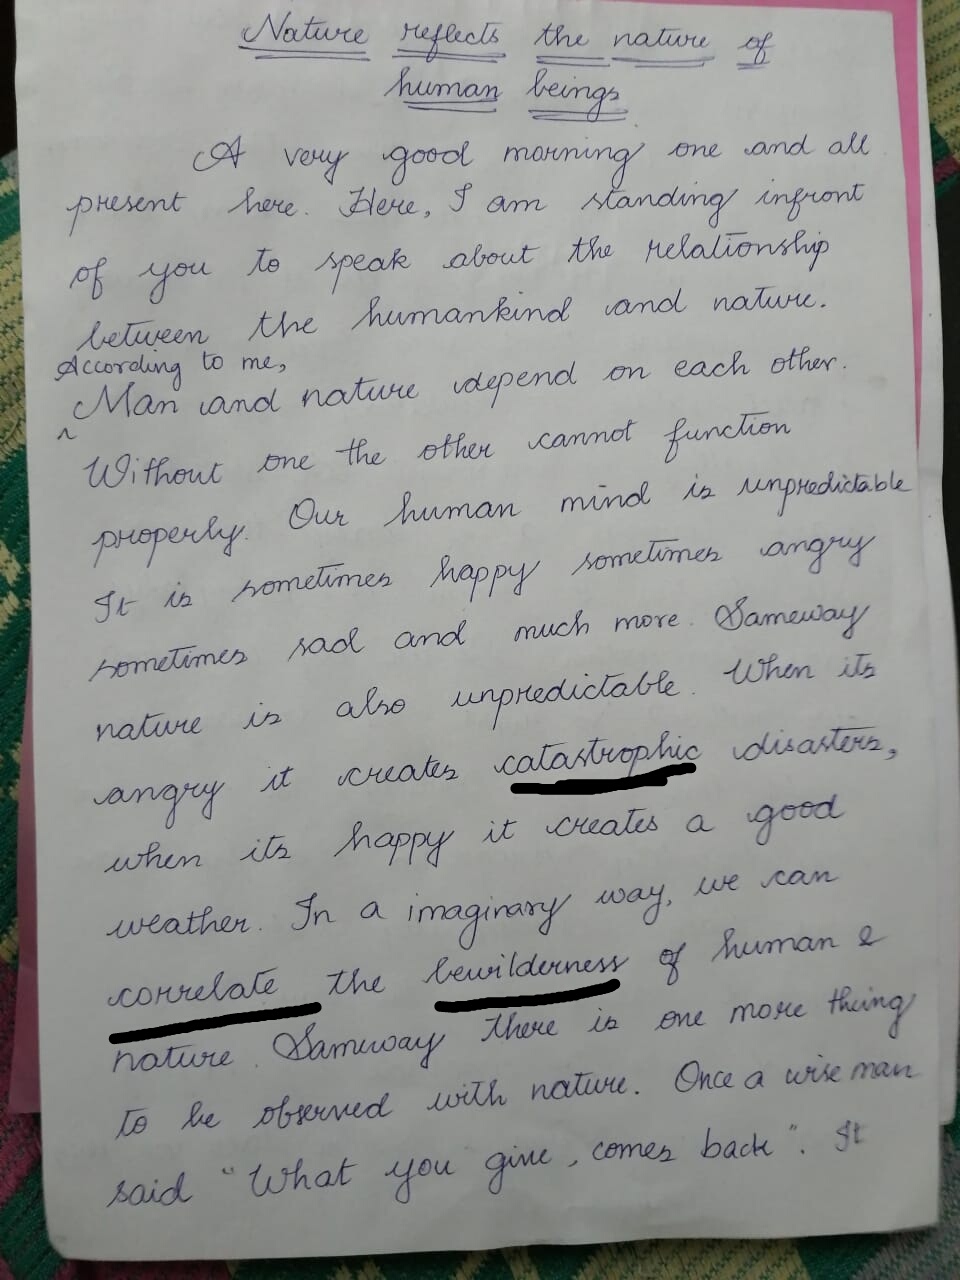 Nature reflects the nature of
human beings
A very good morning one and all
present here. Here, I am standing infront
of you to speak about the relationship
between the humankind and nature.
According to me,
^ Man and nature depend on each other.
Without one the other cannot function
properly. Our human mind is unpredictable
It is sometimes happy sometimes angry
sometimes sad and much more. Sameway
nature is also unpredictable. When its
angry it creates catastrophic disasters,
when its happy it creates a good
weather. In a imaginary way, we can
correlate the bewilderness of human &
nature. Sameway there is one more thing
to be observed with nature. Once a wise man
said "What you give, comes back". It